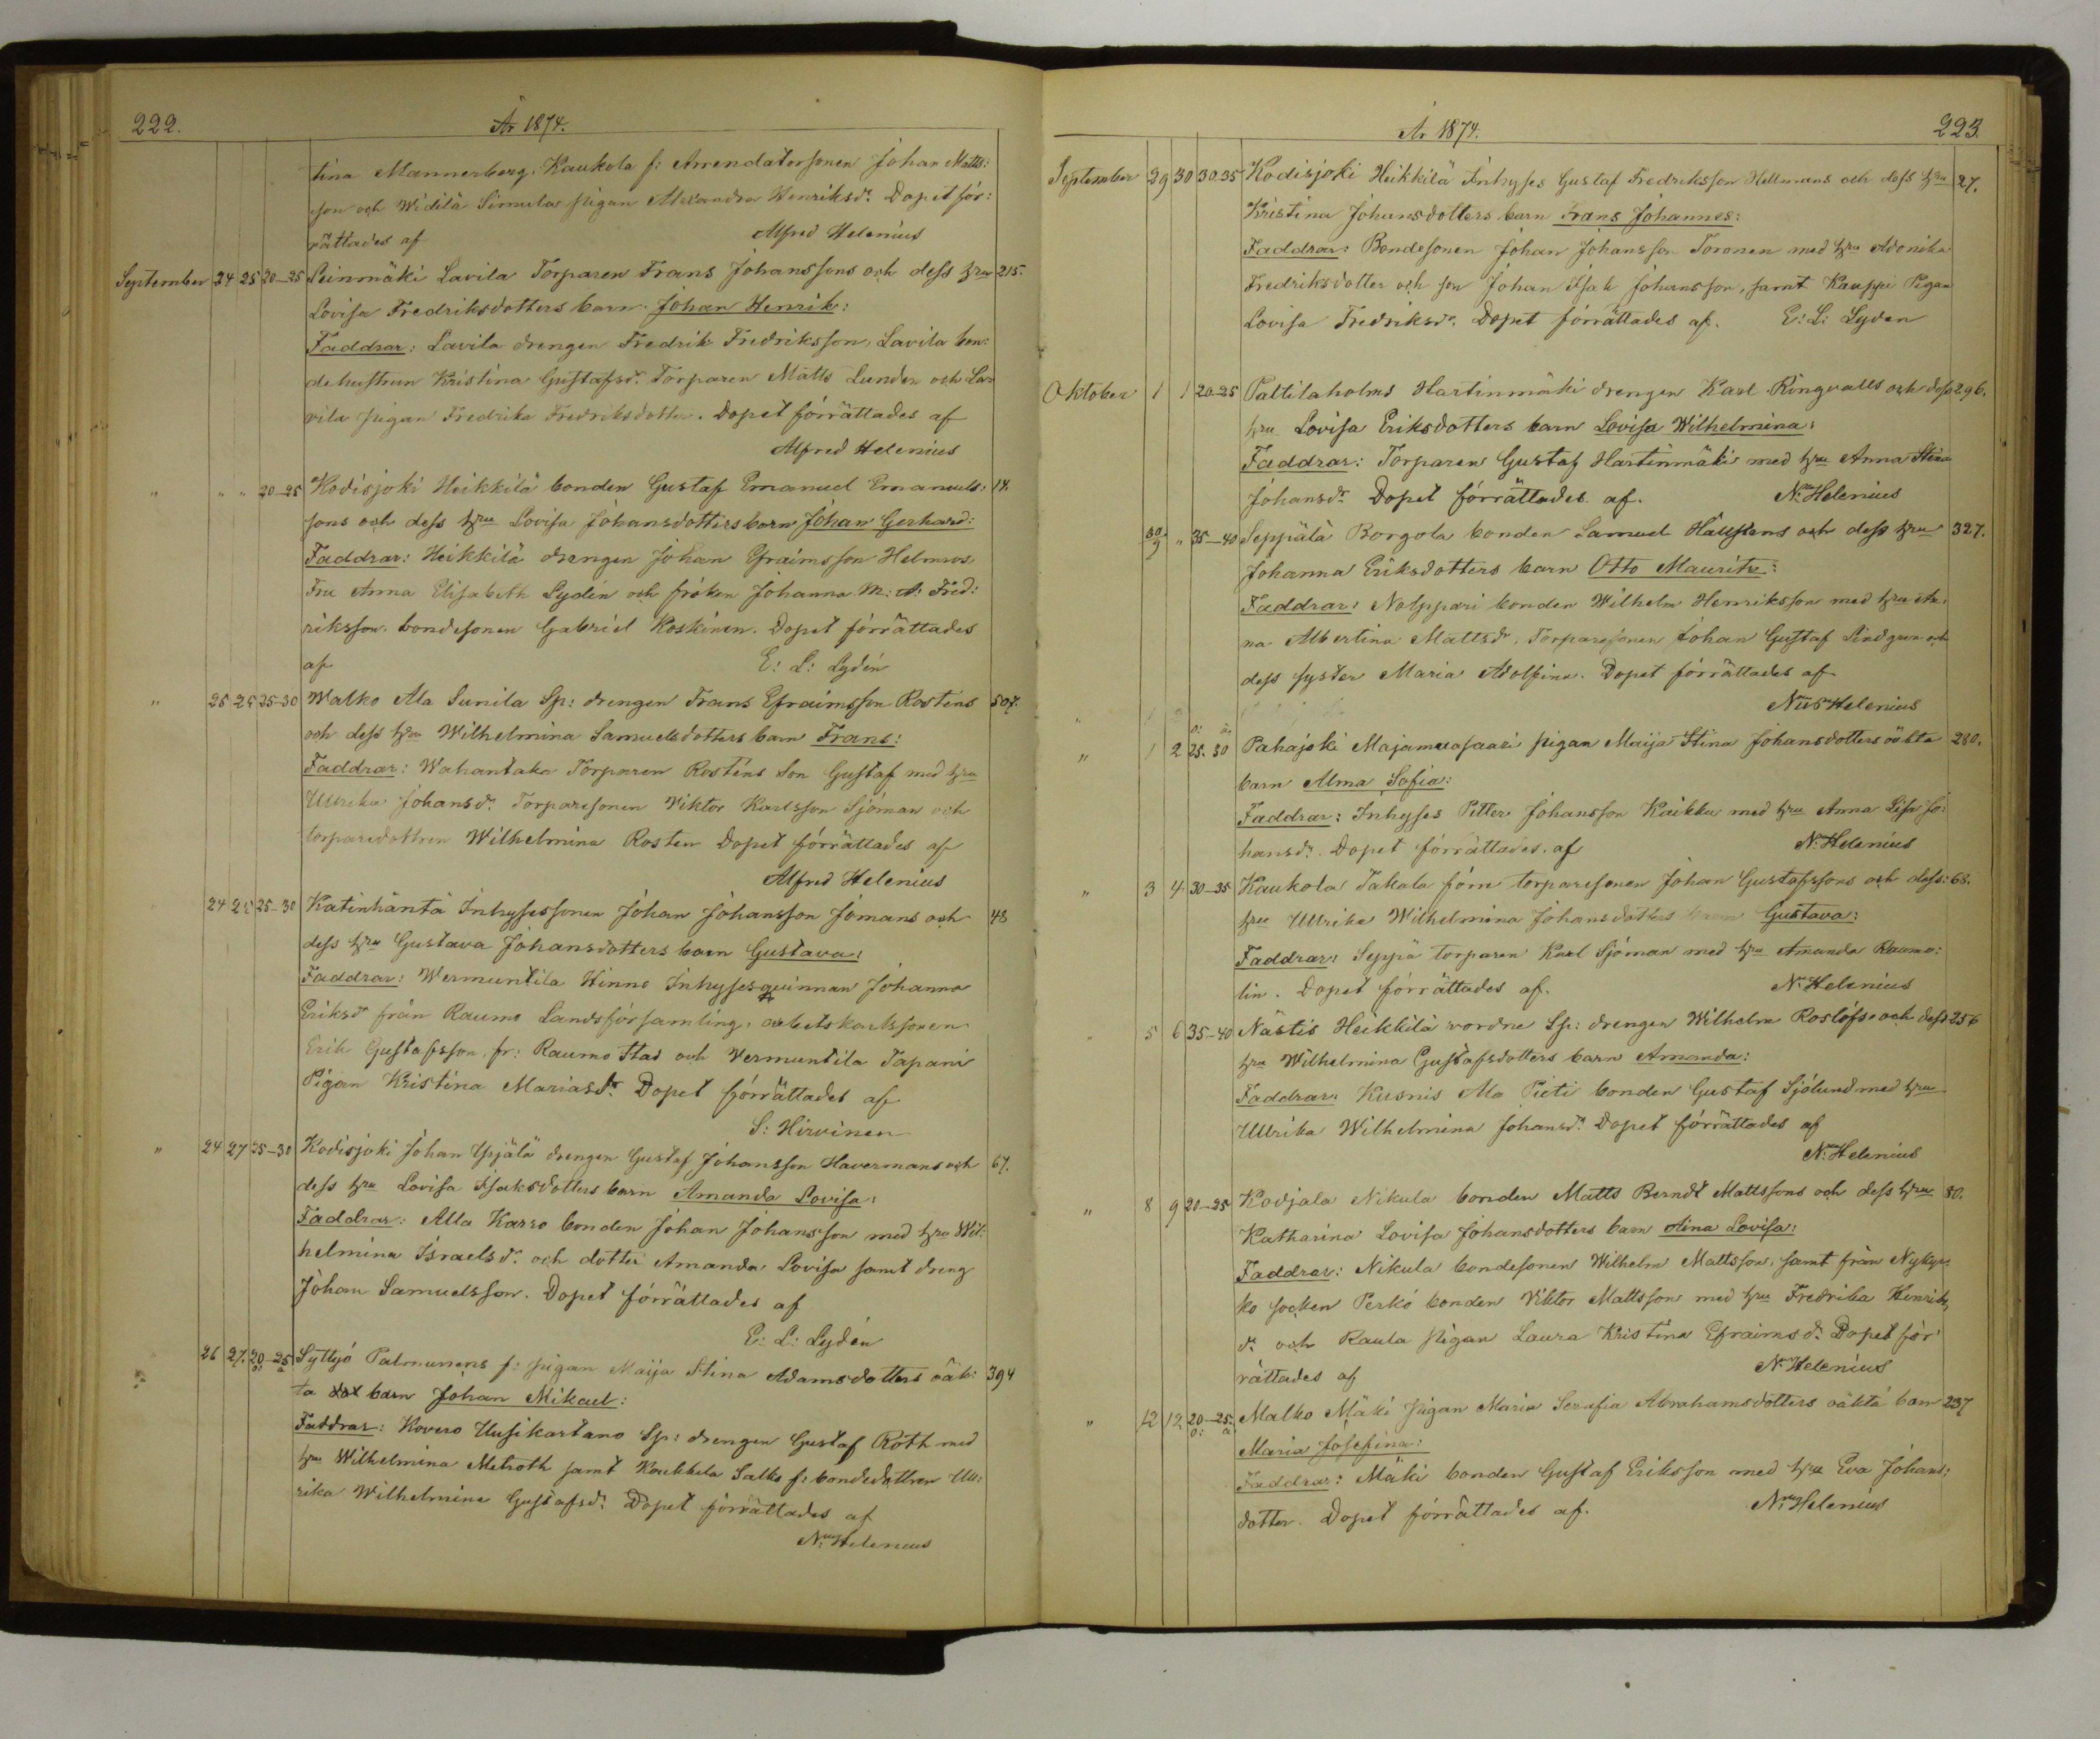 222.
År 1874.
tina Mannerberg, Kaukola f: Arrendatorsonen Johan Matts:
son och Widilä Simula pigan Alexandra Henriksdr. Dopet för:
rättades af Alfred Helenius
September 24 25 20–25 Leinmäki Lavila Torparen Frans Johanssons och dess hru 215.
Lovisa Fredriksdotters barn Johan Henrik:
Faddrar: Lavila drengen Fredrik Fredriksson, Lavila bon:
dehustrun Kristina Gustafsdr. Torparen Matts Lunden och La:
vila pigan Fredrika Fredriksdotter. Dopet förrättades af
Alfred Helenius
" " " 20–25 Kodisjoki Heikkilä bonden Gustaf Emanuel Emanuels: 14.
sons och dess hru Lovisa Johansdotters barn Johan Gerhard:
Faddrar: Heikkilä drengen Johan Efraimsson Helmros,
Fru Anna Elisabeth Lydén och fröken Johanna M: A: Fred:
riksson. bondesonen Gabriel Koskinen. Dopet förrättades
af E: L: Lydén
" 25 25 25–30 Walko Ala Sunila Sp: drengen Frans Efraimsson Rosténs 507.
och dess hru Wilhelmina Samuelsdotters barn Frans:
Faddrar: Wahantaka Torparen Rosténs Son Gustaf med hru
Ullrika Johansdr. Torparesonen Viktor Karlsson Sjöman och
torparedottren Wilhelmina Rosten Dopet förrättades af
Alfred Helenius
24 25 25–30 Katinhäntä Inhysessonen Johan Johansson Jomans och 48
dess hru Gustava Johansdotters barn Gustava:
Faddrar: Wermuntila Hinno Inhysesquinnan Johanna
Eriksdr från Raumo Landsförsamling, arbetskarlssonen
Erik Gustafsson, fr: Raumo Stad och Vermuntila Tapani
Pigan Kristina Mariasdr. Dopet förrättades af
S: Hirvinen
" 24 27 25–30 Kodisjoki Johan Yrjälä drengen Gustaf Johansson Havermans och 67.
dess hru Lovisa Isaksdotters barn Amanda Lovisa:
Faddrar: Alla Karro bonden Johan Johansson med hru Wil:
helmina Israelsdr. och dotter Amanda Lovisa samt dreng
Johan Samuelsson. Dopet förrättades af
E: L: Lydén
26 27. 20–25 o: a Syttyö Palmunens f: pigan Maija Stina Adamsdotters oäk: 394
ta barn Johan Mikael:
Faddrar: Kovero Uusikartano Sp: drengen Gustaf Roth med
hru Wilhelmina Metroth samt Koukkela Salko f: bondedottren Ull:
rika Wilhelmina Gustafsdr. Dopet förrättades af
N: Helenius
År 1874. 223.
September 29 30 30.35 Kodisjoki Heikkilä Inhyses Gustaf Fredriksson Hellmans och dess hru 27.
Kristina Johansdotters barn Frans Johannes:
Faddrar: Bondesonen Johan Johansson Toronen med hru Adonika
Fredriksdotter och son Johan Isak Johansson, samt Kauppi Pigan
Lovisa Fredriksdr. Dopet förrättades af. E: L: Lyden
Oktober 1 1 20–25 Paltilaholms Hartinmäki drengen Karl Ringvalls och dess 296.
hru Lovisa Eriksdotters barn Lovisa Wilhelmina:
Faddrar: Torparen Gustaf Hartinmäki med hru Anna Stina
Johansdr. Dopet förrättades af. N: Helenius
30/9 " 35–40 Seppälä Borgola bonden Samuel Hällstens och dess hru 327.
Johanna Eriksdotters barn Otto Mauritz:
Faddrar: Nolppari bonden Wilhelm Henriksson med hru An:
na Albertina Mattsdr, Torparesonen Johan Gustaf Lindgren och
dess syster Maria Adolfina. Dopet förrättades af
Nils Helenius
" 1 2 o: ä: 25. 30 Pahajoki Majamuasaari pigan Maija Stina Johansdotters oäkta 280.
barn Alma Sofia:
Faddrar: Inhyses Petter Johansson Kaikku med hru Anna Lisa Jo:
hansdr. Dopet förrättades. af N: Helenius
" 3 4 30–35 Kaukola Takala förre torparesonen Johan Gustafssons och dess: 68.
hru Ullrika Wilhelmina Johansdotters barn Gustava:
Faddrar: Seppä torparen Karl Sjöman med hru Amanda Raumo:
lin. Dopet förrättades af. N: Helenius
5 6 35–40 Nästis Heikkilä vordne Sp: drengen Wilhelm Roslöfs och dess 256
hru Wilhelmina Gustafsdotters barn Amanda:
Faddrar: Kusnis Ala Pieti bonden Gustaf Sjölund med hru
Ullrika Wilhelmina Johansdr. Dopet förrättades af
N: Helenius
" 8 9 20–25 Kodjala Nikula bonden Matts Berndt Mattssons och dess hru 80.
Katharina Lovisa Johansdotters barn Aina Lovisa:
Faddrar: Nikula bondesonen Wilhelm Mattsson, samt från Nykyr:
ko socken Perkö bonden Viktor Mattsson med hru Fredrika Henriks
dr. och Raula pigan Laura Kristina Efraimsdr. Dopet för:
rättades af N: Helenius
" 12 12 20–25: o: a. Malko Mäki pigan Maria Serafia Abrahamsdotters oäkta barn 237
Maria Josefina:
Faddrar: Mäki bonden Gustaf Eriksson med hru Eva Johans:
dotter. Dopet förrättades af. N: Helenius